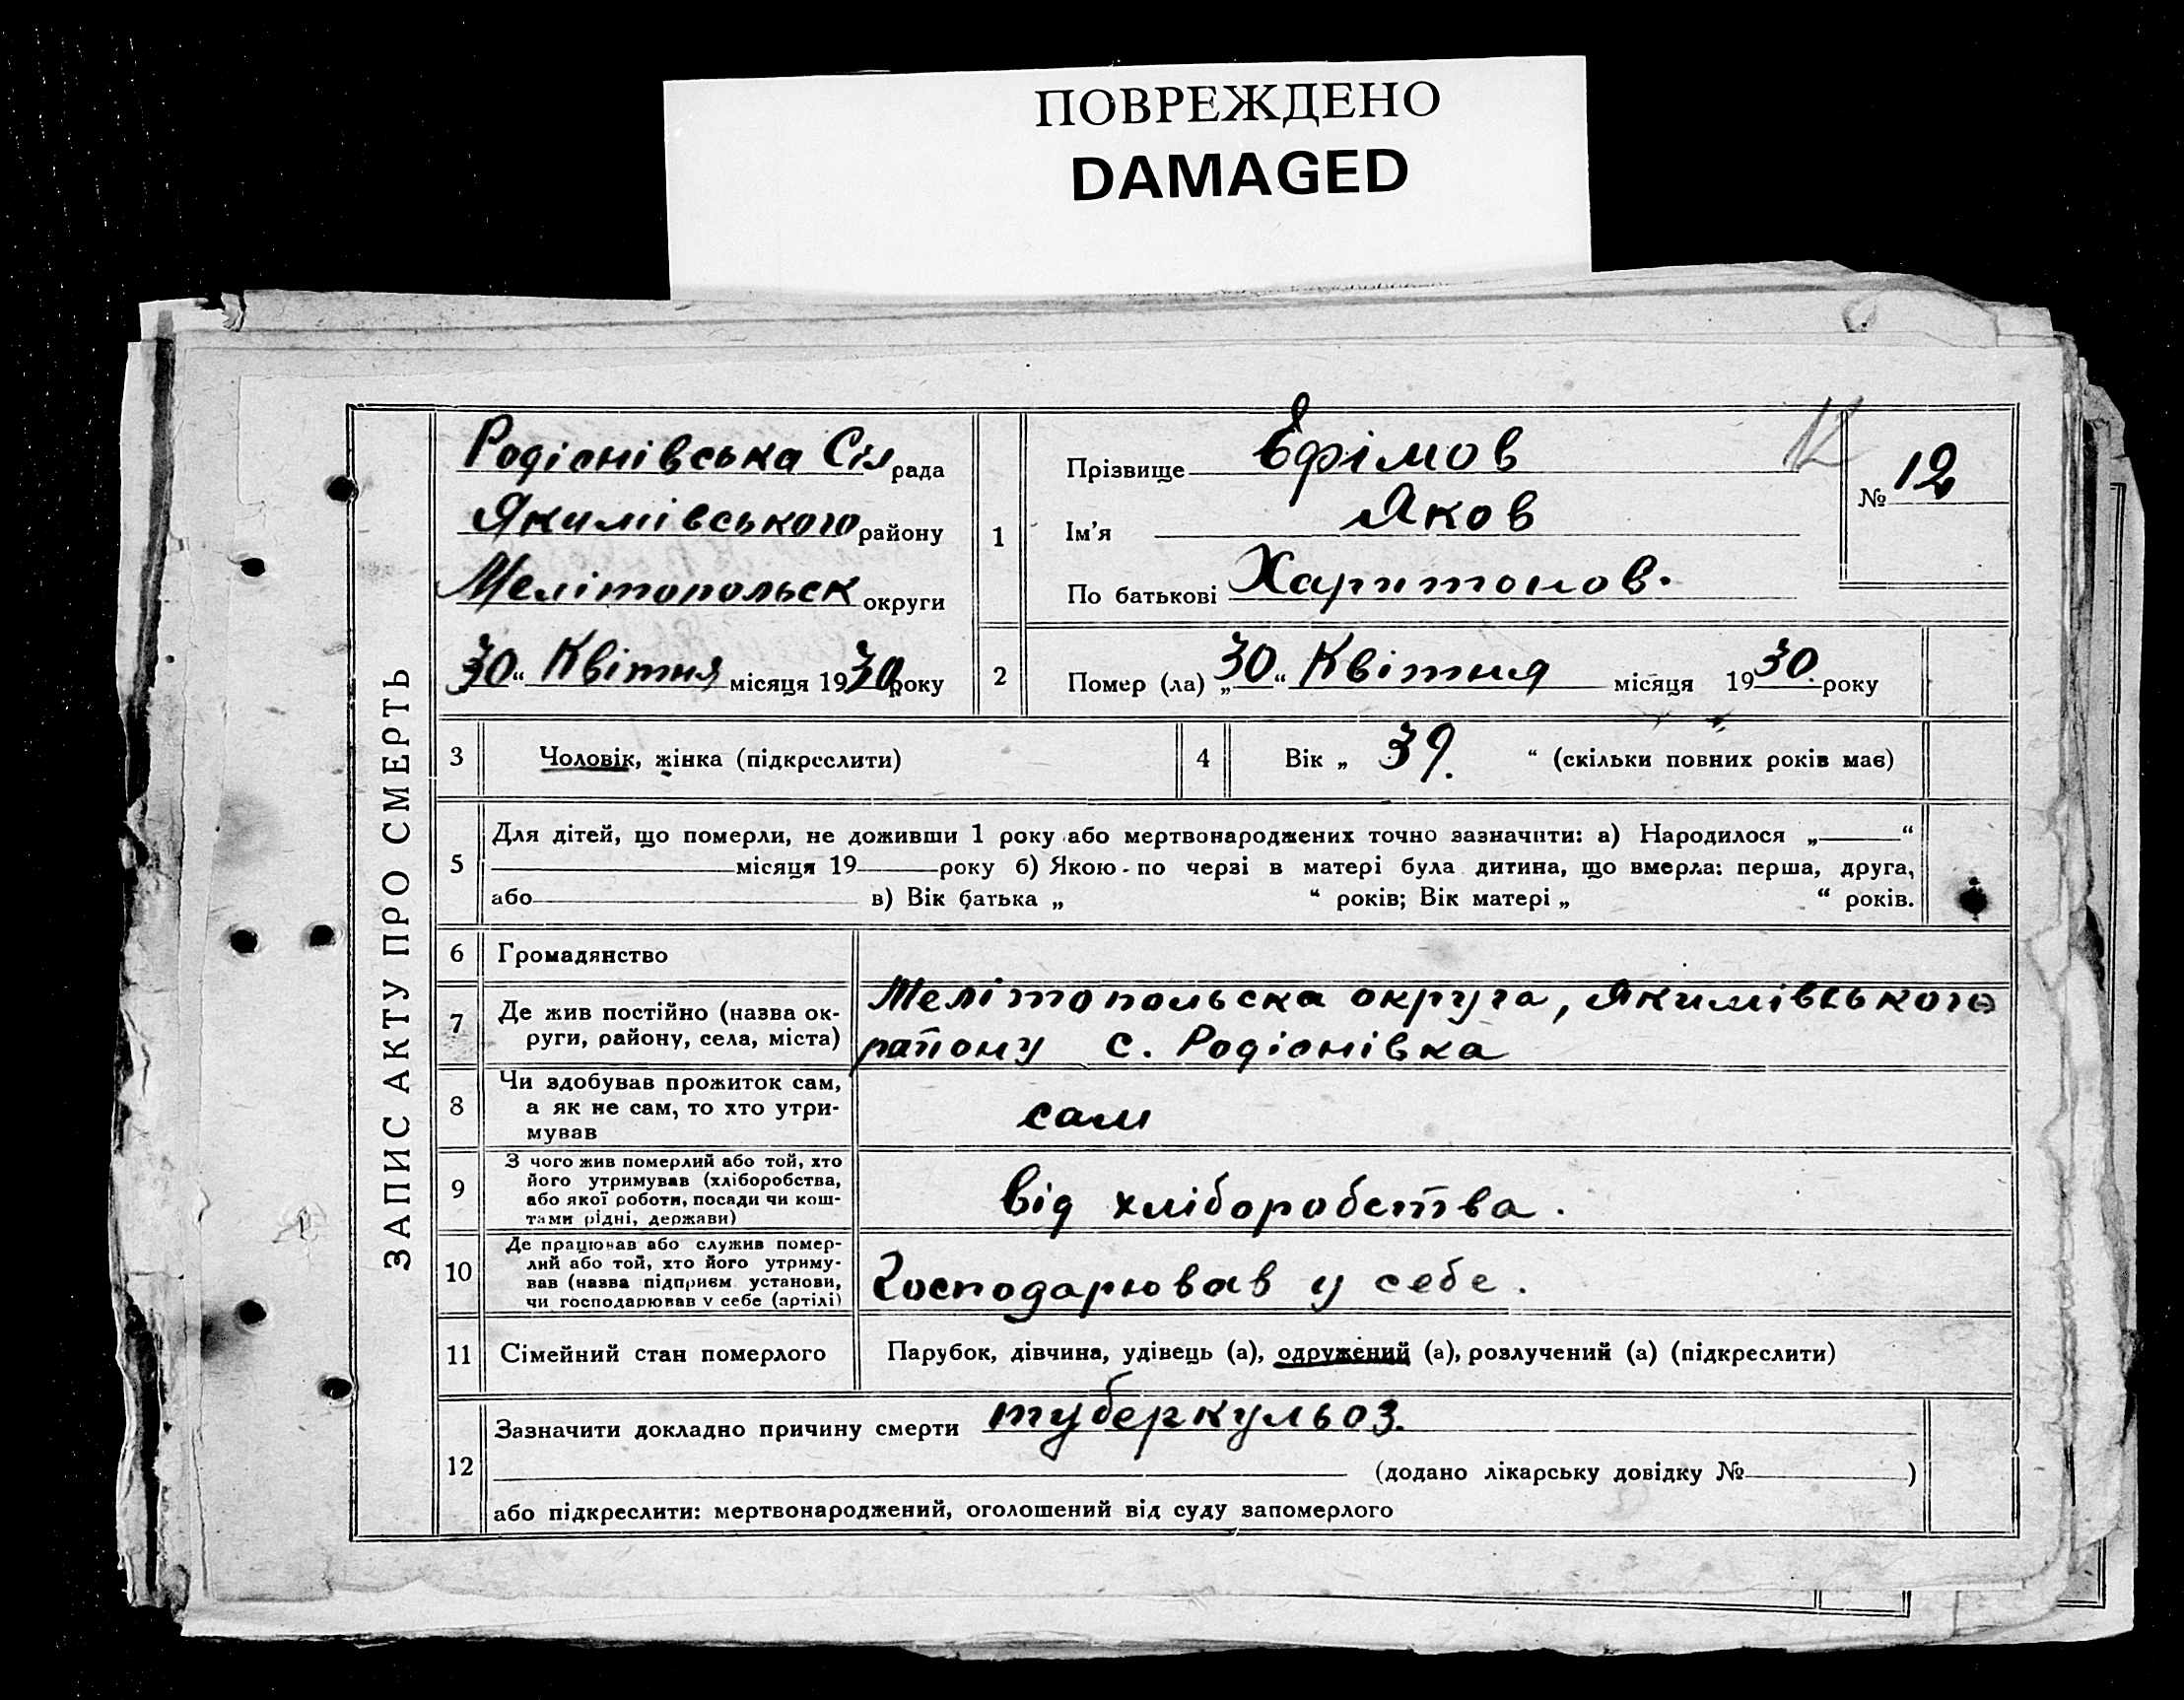 ПОВРЕЖДЕНО
DAMAGED
ЗАПИС АКТУ ПРО СМЕРТЬ
Родіонівська Сіл рада
Якимівського району
Мелітопольськ округи
30 “ Квітня місяця 1930 року
1
Прізвище Ефімов
Ім’я Яков
По батькові Харитонов.
№ 12
2
Помер (ла) „30“ Квітня місяця 1930. року
3
Чоловік, жінка (підкреслити)
4
Вік „ 39. “ (скільки повних років має)
5
Для дітей, що померли, не доживши 1 року або мертвонароджених точно зазначити: а) Народилося „ “
місяця 19 року б) Якою по черзі в матері була дитина, що вмерла: перша, друга,
або в) Вік батька „ “ років; Вік матері „ “ років.
6
Громадянство
7
Де жив постійно (назва ок-
руги, району, села, міста)
Мелітопольска округа, Якимівського
району с. Родіонівка
8
Чи здобував прожиток сам,
а як не сам, то хто утри-
мував
сам
9
З чого жив померлий або той, хто
його утримував (хліборобства,
або якої роботи, посади чи кош-
тами рідні, держави)
від хліборобства.
10
Де працював або служив помер-
лий або той, хто його утриму-
вав (назва підприєм. установи,
чи господарював у себе (артілі)
Господарював у себе.
11
Сімейний стан померлого
Парубок, дівчина, удівець (а), одружений (а), розлучений (а) (підкреслити)
12
Зазначити докладно причину смерти туберкульоз.
(додано лікарську довідку № )
або підкреслити: мертвонароджений, оголошений від суду запомерлого